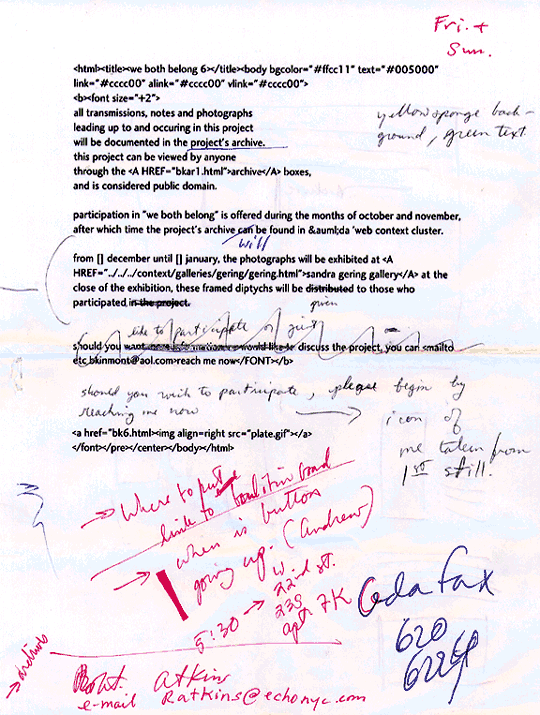 Fri. +
Sun.
<html><title>we both belong 6></title><body bgcolor="#ffcc11" text="#005000"
link="#cccc00" alink="#cccc00" vlink="#cccc00">
<b><font size="+2">
all transmissions, notes and photographs
leading up to and occuring in this project
will be documented in the project's archive.
this project can be viewed by anyone
through the <A HREF="bkar1.html">archive</A> boxes,
and is considered public domain.
yellow sponge back-
ground, green text
participation in "we both belong" is offered during the months of october and november,
after which time the project's archive can be found in &auml;da 'web context cluster.
will
from [] december until [] january, the photographs will be exhibited at <A
HREF="../../../context/galleries/gering/gering.html">sandra gering gallery</A> at the
close of the exhibition, these framed diptychs will be distributed to those who
given
participated in the project.
like to participate or just
should you want would like to discuss the project, you can <mailto
etc.bkinmont@aol.com>reach me now</FONT></b>
should you wish to participate, please begin by
reaching me now
icon of
me taken from
1st still.
<a href="bk6.html><img align=right src="plate.gif"></a>
</font></pre></center></body></html>
Where to put
link to
when is button
going up. (Andrew)
5:30
W.
22nd st.
239
apt 7K
ada fax
620
archives
Atkins
e-mail Ratkins@echonyc.com